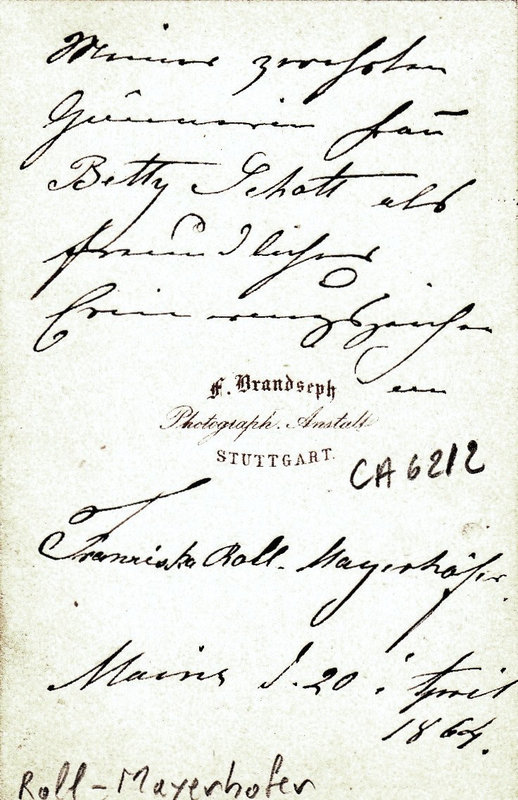 Meiner verehrten
Gönnerin Frau
Betty Schott als
freundliches
Erinnerungszeichen
an
F. Brandseph
Photograph. Anstalt
STUTTGART.
CA 6212
Franziska Roll-Mayerhöfer.
Mainz d. 20. April
1864.
Roll-Mayerhofer